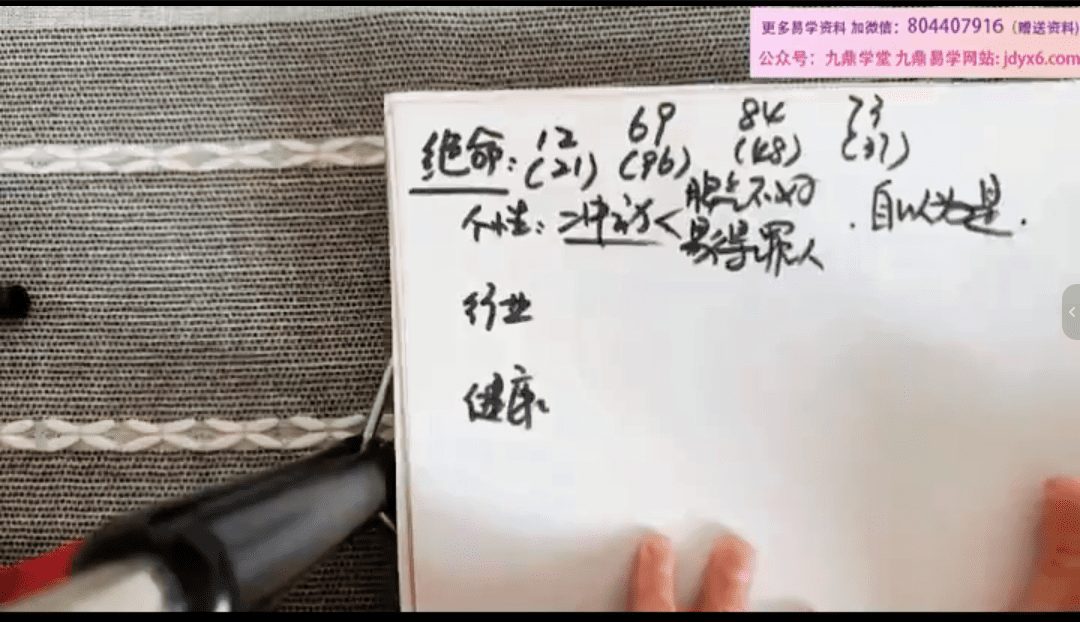 更多易学资料 加微信：804407916（赠送资料)
公众号：九鼎学堂 九鼎易学网站: jdyx6.com
绝命: 12 69 84 73
(21) (96) (48) (37)
个性: 冲动 < 脾气不好 . 自以为是.
易得罪人
行业
健康: